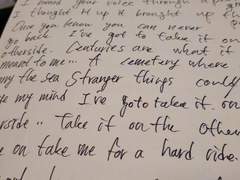 I heard your voice through a p
I thought it up it brought up th
Once you know you can never
go back I've got to take it on
otherside. Centuries are what it
meant to me... A cemetery where
my the sea Stranger things could
e my mind I've goto take it. on
rside.. Take it on the Other
e on take me for a hard ride.